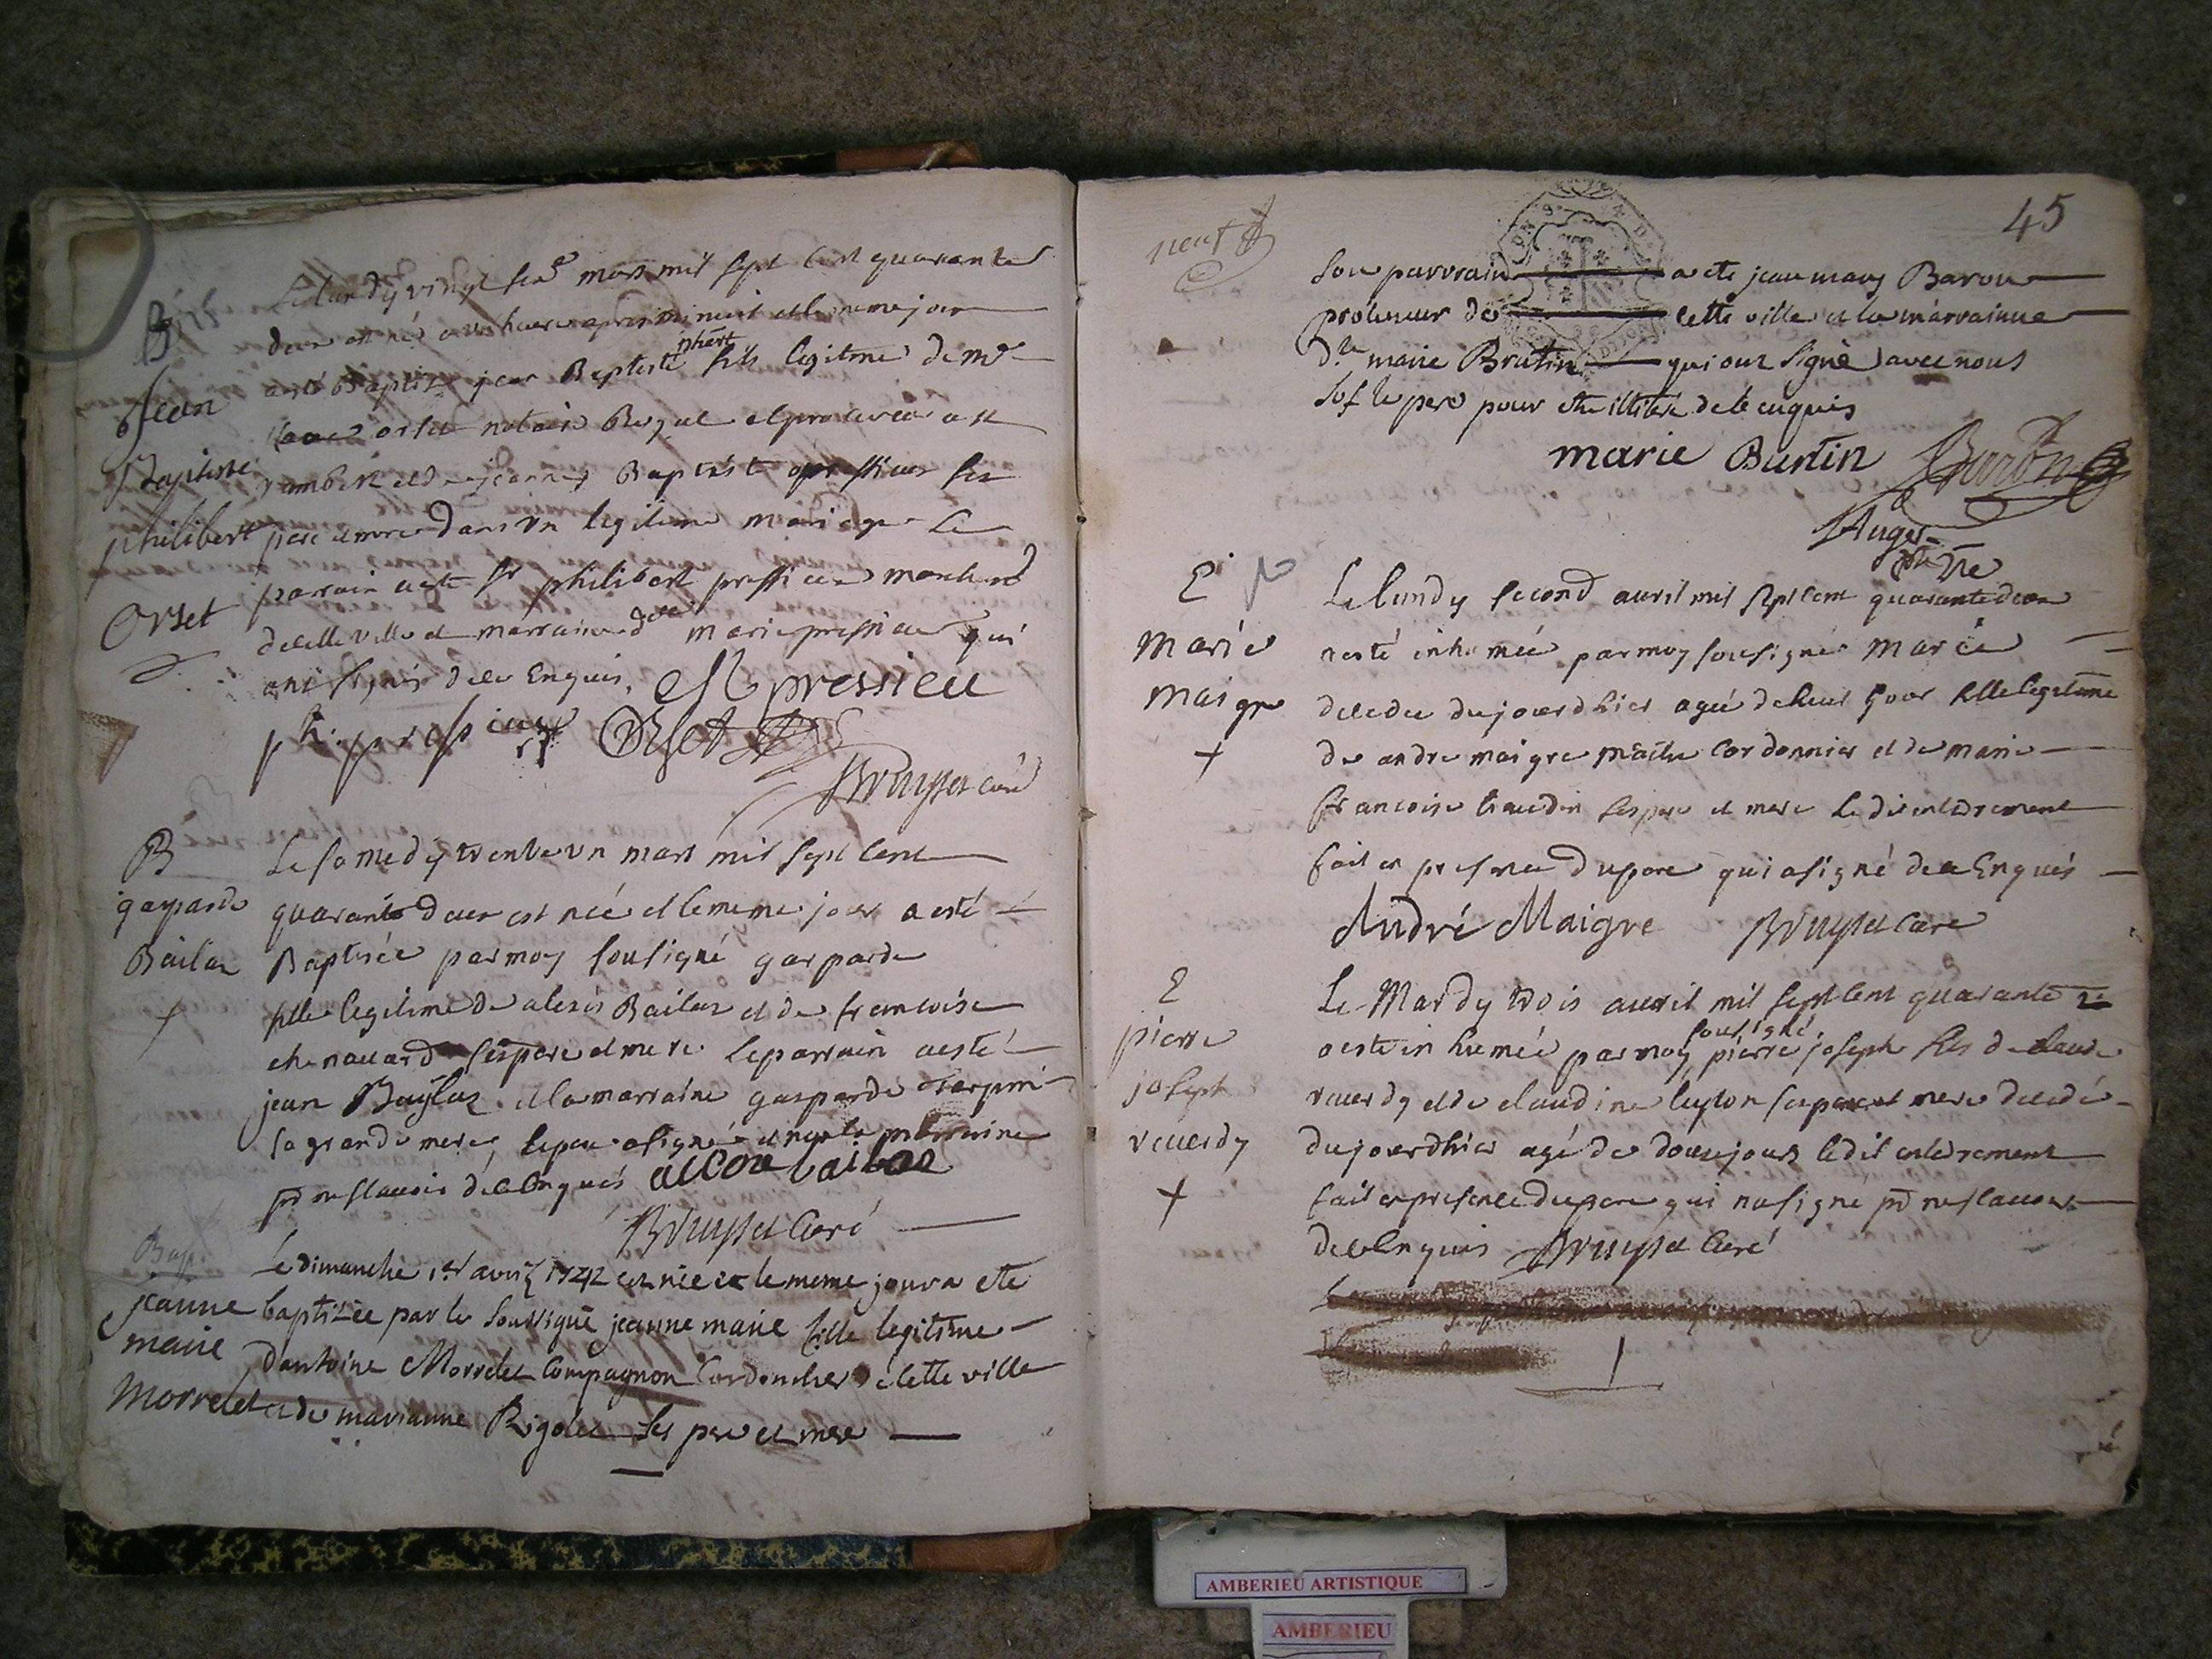 B
Jean
Baptiste
philibert
Orset
Le lundy vingt six mars mil sept cent quarante
deux est né heures apres minuit et le meme jour
a esté Baptizé jean Baptiste phert fils legitime de mre
orset notaire Royal et procureur a st
rambert et de jeanne Baptiste pressieu ses
pere et mere dans un legitime mariage Le
parrain a esté sr philibert pressieu marchand
de cette ville et marraine dlle marie pressieu qui
ont signés de ce Enquis. pressieu
ph. pressieux Orset
Bruyset curé
B
gasparde
Bailat
Le samedy trente un mars mil sept cent
quarante deux est née et le meme jour a esté
Baptisée par moy sousigné gasparde
fille legitime de alexis Bailat et de francoise
chenavard ses pere et mere le parrain a esté
jean Baylat et la marraine gasparde
sa grande mere, le pere a signé et non la marraine
pr ne scavoir de ce enquis
Bruyset Curé
Bap.
jeanne
marie
Morrelet
Le dimanche 1er avril 1742 est née et le meme jour a ete
baptizée par le soussigné jeanne marie fille legitime
d'antoine Morrelet Compagnon Cordonnier de cette ville
et de marianne Rigolet ses pere et mere
neuf
45
son parrain a ete jean mary Baron
procureur de cette ville et la marrainne
Dlle marie Brutin qui ont signé avec nous
sof le pere pour etre illitéré de ce enquis
marie Burtin Baron
Auger
ptre vre
E
Marie
Maigre
+
Le lundy second avril mil sept cent quarante deux
a esté inhumée par moy sousigné marie
decedee du jourd'hier agée de huit jour fille legitime
de andre maigre maitre Cordonnier et de marie
francoise traudin ses pere et mere Le dit enterrement
fait en presence du pere qui a signé de ce Enquis
André Maigre Bruyset Curé
E
pierre
joseph
reverdy
+
Le Mardy trois avril mil sept cent quarante 2
a este inhumée par moy sousigné pierre joseph fils de claude
reverdy et de claudine luyton ses pere et mere decedé
du jourd'hier agé de douze jours le dit enterrement
fait en presence du pere qui na signé pr ne scavoir
de ce Enquis Bruyset Curé
AMBERIEU ARTISTIQUE
AMBERIEU